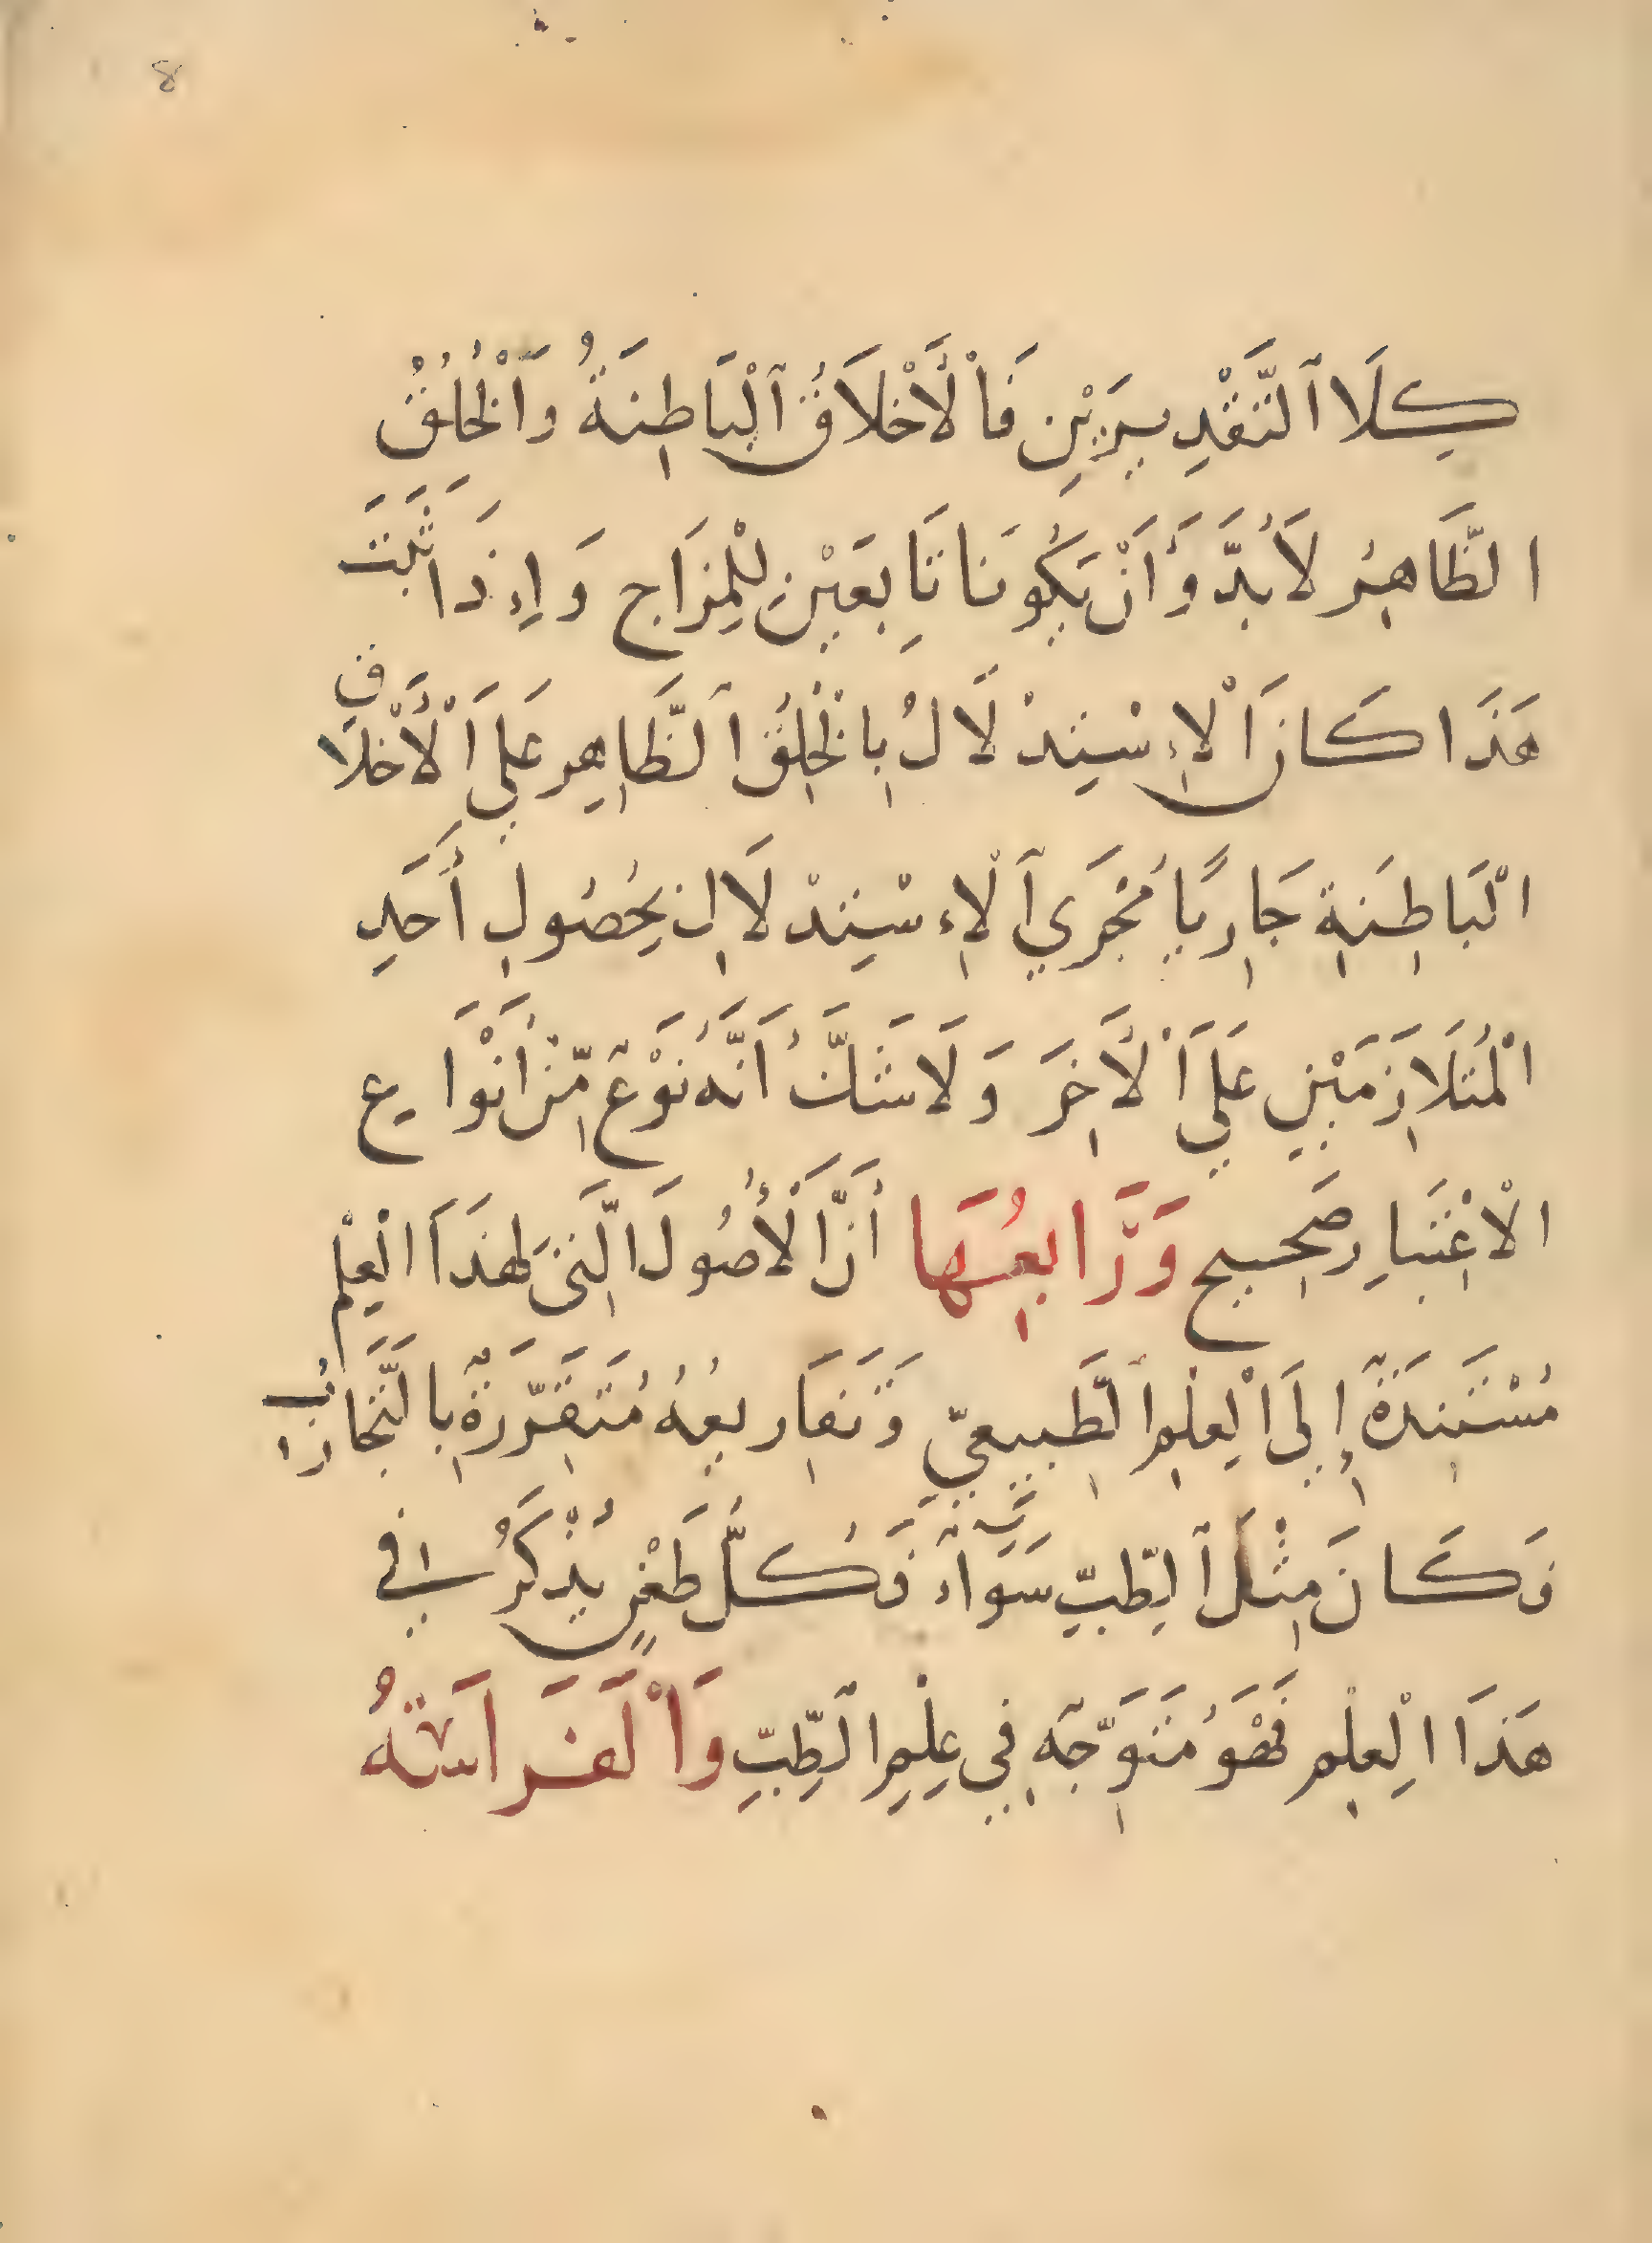 8
كِلَا ٱلتَّقْدِيرَيْنِ فَاْلَأَخْلَاقُ ٱلْبَاطِنَةُ وَاَلْخُلُقُ
الظَّاهِرُ لَابُدَّ وَأَنْ يَكُونَا تَابِعَيْنِ لِلْمِزَاجِ وَاِذَا ثَبَتَ
هَذَا كَانَ اَلْإِسْتِدْلَالُ بِالْخُلُقِ الظَّاهِرِ عَلَي اَلْأَخْلَاقِ
الْبَاطِنَةِ جَارِيًا مُجْرَي اَلْإِسْتِدْلَالِ بِحُصُولِ أَحَدِ
الْمُتَلَازِمَيْنِ عَلَي اَلْأَخِرَ وَلَاشَكَّ أَنَّهُ نَوْعٌ مِّنْ أَنْوَاعِ
الْاعْتِبَارِ صَحِيحٍ وَرَابِعُهَا أَنَّ اَلْأُصُولَ الَّتِى لِهَذَا الْعِلْمِ
مُسْتَنِدَةٌ إِلَى اَلْعِلْمِ الطَّبِيعِيِّ وَتَفَارِيعُهُ مُتَقَرِّرَةٌ بِالتَّجَارِبُ
فَكَانَ مِثْلَ ٱلطِّبِّ سَوَآءٌ فَكُلُّ طَعْنٍ يُذْكَرُ فِي
هَذَا الْعِلْمِ فَهُوَ مُتَوَجِّهٌ فِي عِلْمِ الطِّبِّ وَاَلْفَرَاسَتُهُ